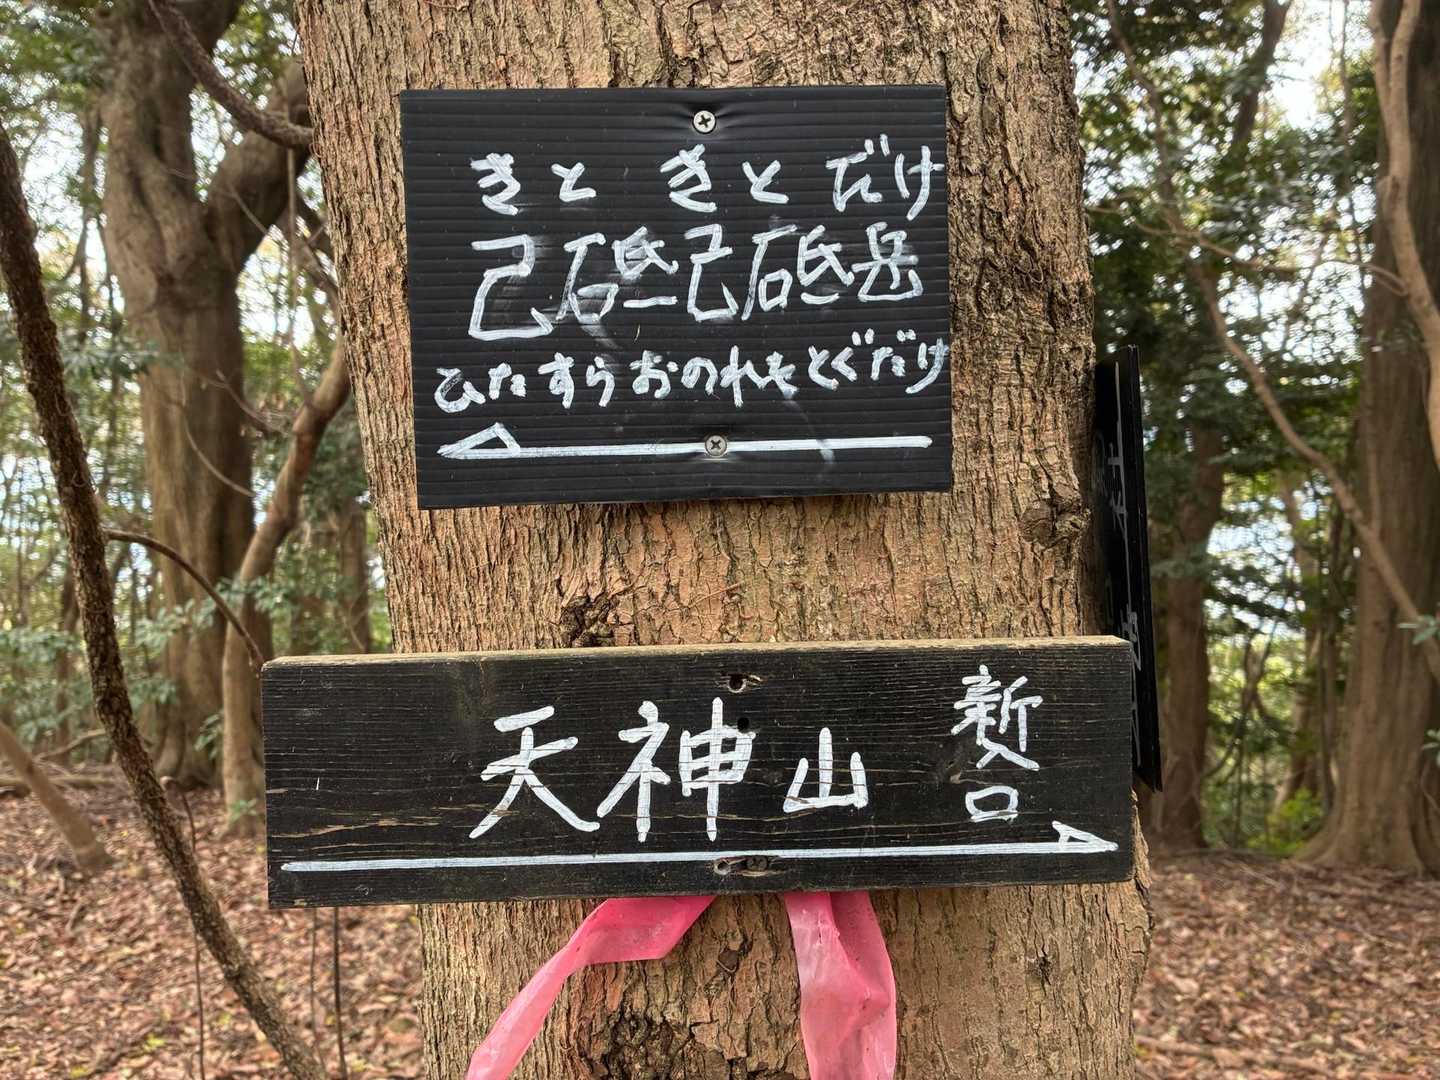 きと きと だけ
己砥己砥岳
ひたすらおのれをとぐだけ
天神山
新入口